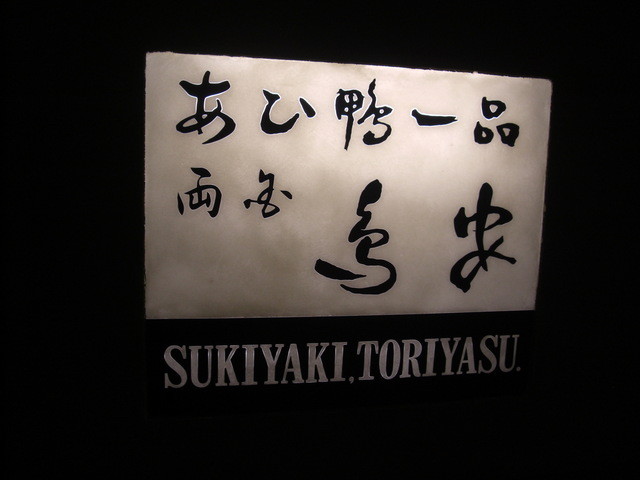 あひ鴨一品
両国 鳥安
SUKIYAKI, TORIYASU.